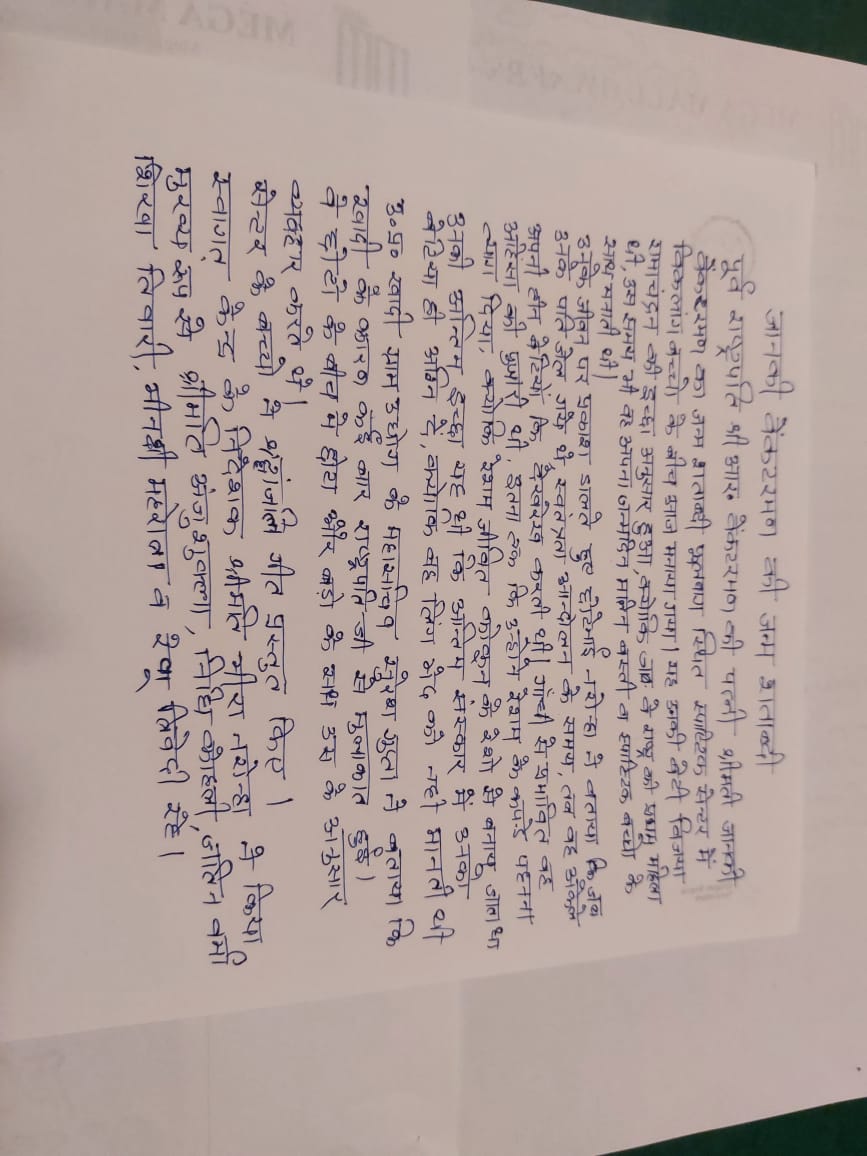 जानकी वेंकटरमण की जन्म शताब्दी
पूर्व राष्ट्रपति श्री आर० वेंकटरमण की पत्नी श्रीमती जानकी
वेंकटरमण का जन्म शताब्दी स्थित स्पास्टिक सेन्टर में
विकलांग बच्चों के बीच आज मनाया गया। यह उनकी बेटी विजया
रामाचंद्रन की इच्छा अनुसार हुआ, क्योंकि जब वे राष्ट्र की प्रथम महिला
थी, उस समय भी वह अपना जन्मदिन मलिन बस्ती व स्पास्टिक बच्चों के
साथ मनाती थी।
उनके जीवन पर प्रकाश डालते हुए छोटेभाई नरोन्हा ने बताया कि जब
उनके पति जेल गये थे स्वतन्त्रता आन्दोलन के समय, तब वह अकेले
अपनी तीन बेटियों कि देखरेख करती थी। गांधी से प्रभावित वह
अहिंसा की पुजारी थी, इतना तक कि उन्होंने रेशम के कपड़े पहनना
त्याग दिया, क्योंकि रेशम जीवित कोकून के रेशो से बनाया जाता था
उनकी अन्तिम इच्छा यह थी कि अन्तिम संस्कार में उनका
बेटियां ही अग्नि दें, क्योंकि वह लिंग भेद को नही मानती थी
उ०प्र० खादी ग्राम उद्योग के महासचिव सुरेश गुप्ता ने बताया कि
खादी के कारण कई बार राष्ट्रपति जी से मुलाकात हुई।
वे छोटो के बीच मे छोटा और बड़ो के साथ उम्र के अनुसार
व्यवहार करते थे।
सेन्टर के बच्चो ने श्रद्धांजलि गीत प्रस्तुत किए।
स्वागत केन्द्र के निदेशक श्रीमति मीरा नरोन्हा ने किया
मुख्य रूप से श्रीमति अंजु शुक्ला, निधि कोहली, नलिन वर्मा
शिखा तिवारी, मीनाक्षी मल्होत्रा व रेखा त्रिवेदी रहे।